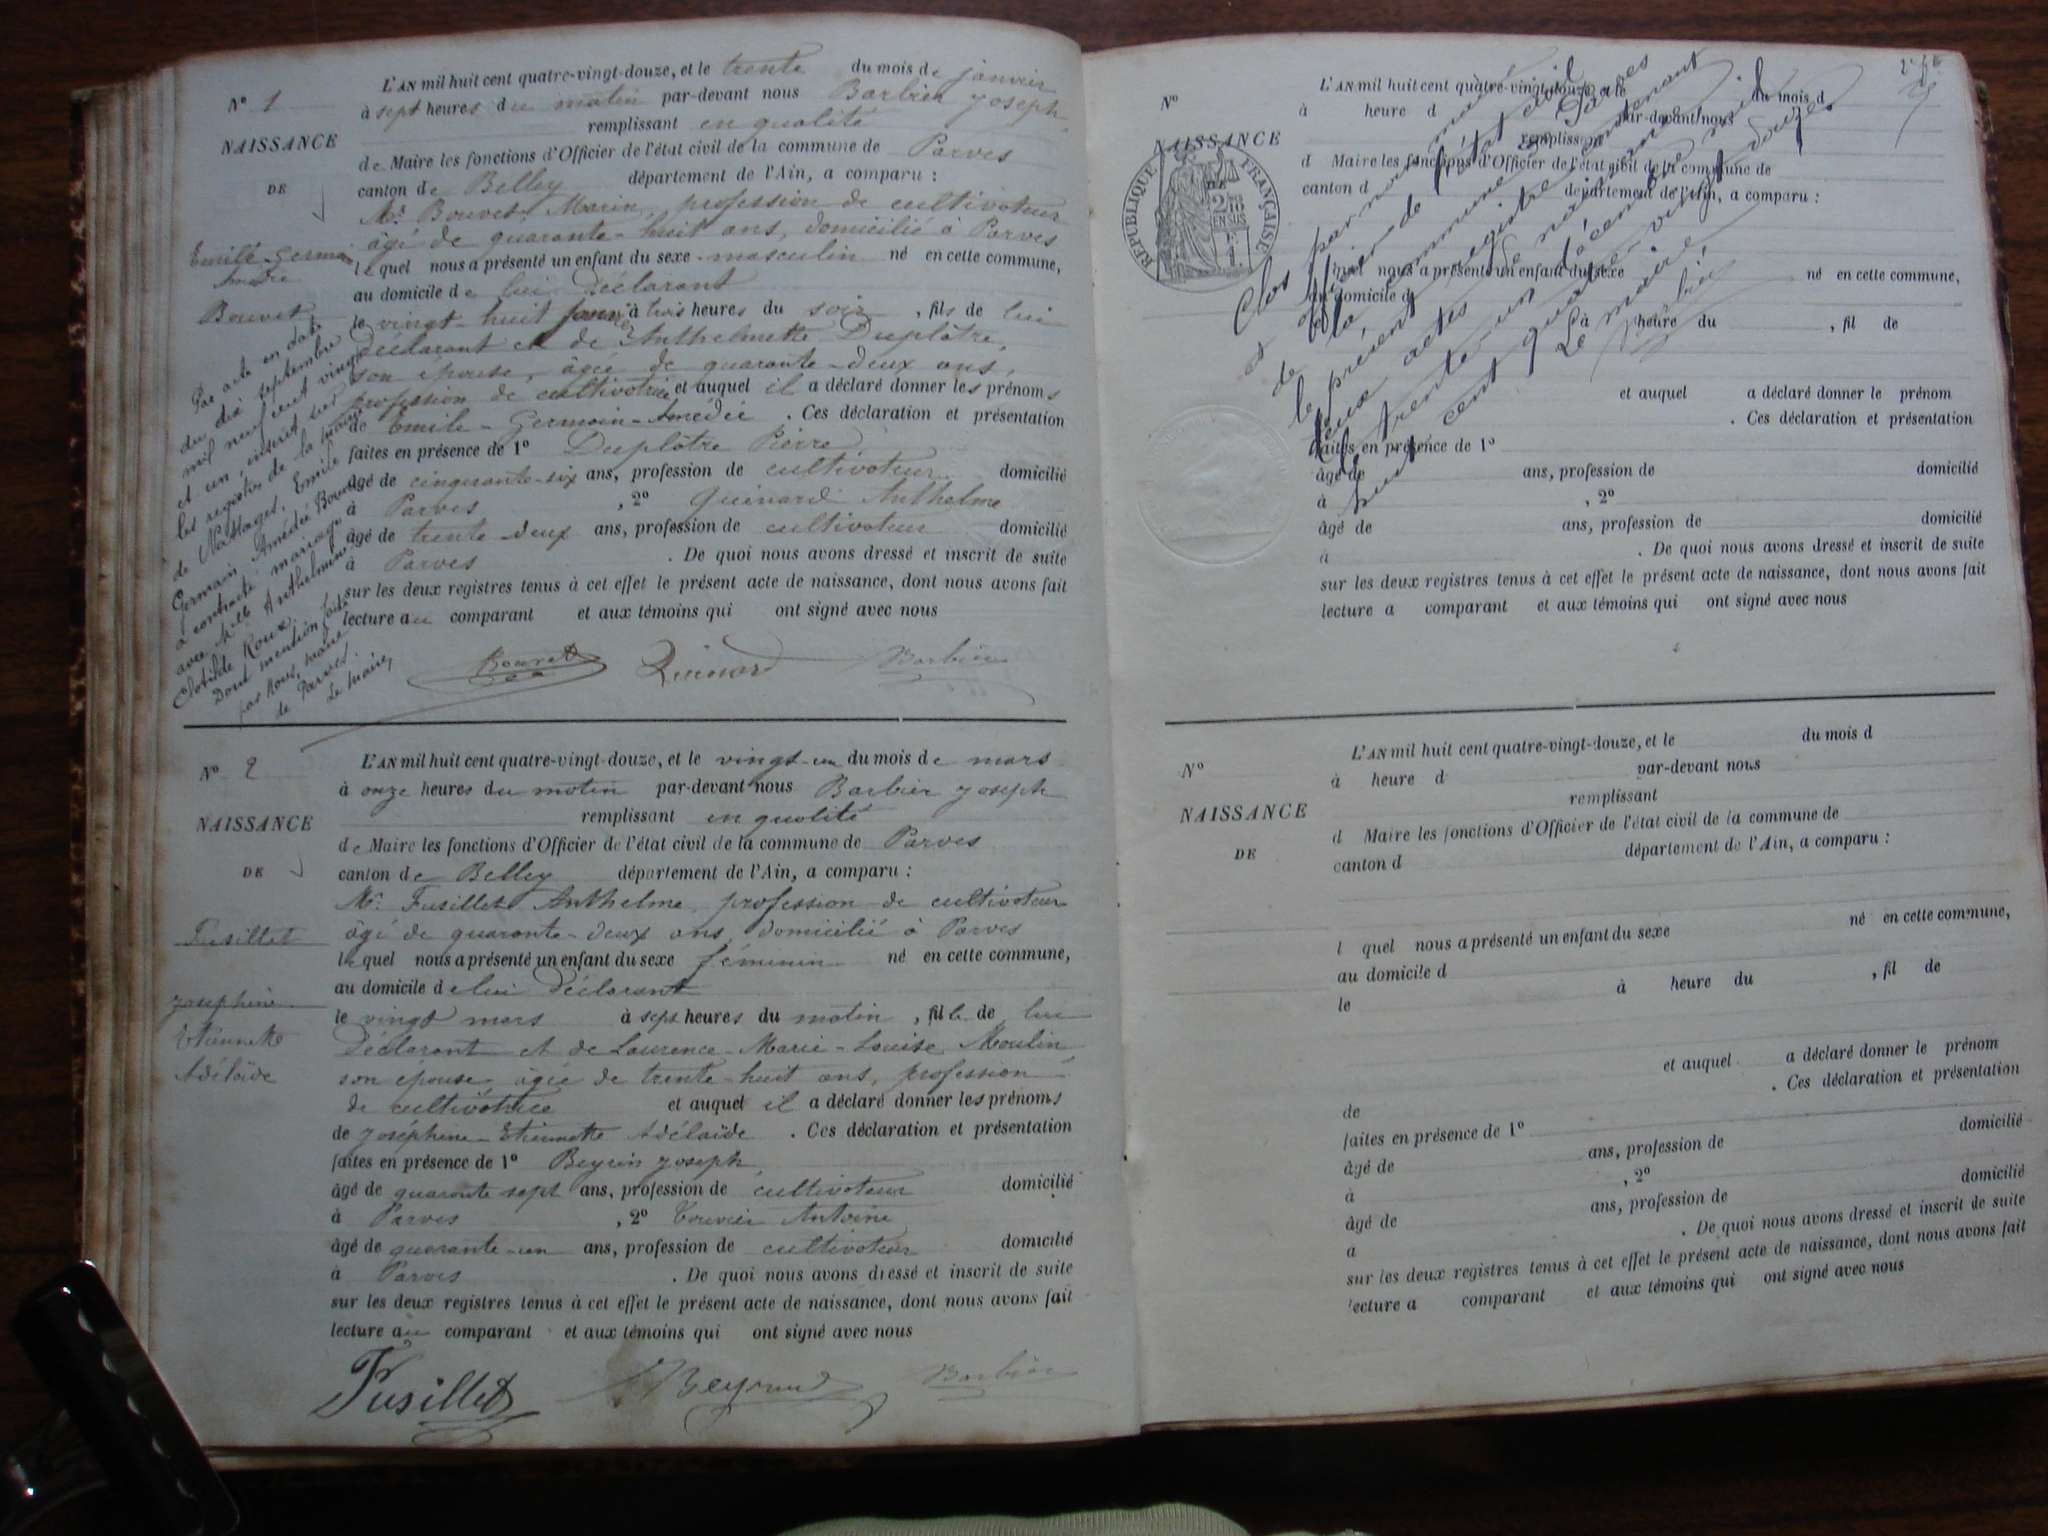 N° 1
NAISSANCE
DE
Emile-Germain
Amédée
Bouvet
L'AN mil huit cent quatre-vingt-douze, et le trente du mois de janvier
à sept heures du matin par-devant nous Barbier Joseph,
remplissant en qualité
de Maire les fonctions d'Officier de l'état civil de la commune de Parves
canton de Belley département de l'Ain, a comparu :
Mr Bouvet Marin, profession de cultivateur
âgé de quarante-huit ans, domicilié à Parves
lequel nous a présenté un enfant du sexe masculin né en cette commune,
au domicile de lui déclarant
le vingt-huit janvier à trois heures du soir, fils de lui
déclarant et de Anthelmette Duplâtre,
son épouse, âgée de quarante-deux ans,
profession de cultivatrice et auquel il a déclaré donner les prénoms
de Emile-Germain-Amédée. Ces déclaration et présentation
faites en présence de 1° Duplâtre Pierre
âgé de cinquante-six ans, profession de cultivateur domicilié
à Parves, 2° Quinard Anthelme
âgé de trente-deux ans, profession de cultivateur domicilié
à Parves. De quoi nous avons dressé et inscrit de suite
sur les deux registres tenus à cet effet le présent acte de naissance, dont nous avons fait
lecture au comparant et aux témoins qui ont signé avec nous
Bouvet Quinard Barbier
Par acte en date
du dix septembre
mil neuf cent vingt
et un, inscrit sur
les registres de la mairie
de Nattages, Emile
Germain Amédée Bouvet
a contracté mariage
avec Mlle Anthelmine
Clotilde Roux.
Dont mention faite
par nous, maire
de Parves.
Le maire,
N° 2
NAISSANCE
DE
Fusillet
Joséphine
Etiennette
Adélaïde
L'AN mil huit cent quatre-vingt-douze, et le vingt-un du mois de mars
à onze heures du matin par-devant nous Barbier Joseph
remplissant en qualité
de Maire les fonctions d'Officier de l'état civil de la commune de Parves
canton de Belley département de l'Ain, a comparu :
Mr Fusillet Anthelme, profession de cultivateur
âgé de quarante-deux ans, domicilié à Parves
lequel nous a présenté un enfant du sexe féminin né en cette commune,
au domicile de lui déclarant
le vingt mars à sept heures du matin, fille de lui
déclarant et de Laurence-Marie-Louise Moulin,
son épouse, âgée de trente-huit ans, profession
de cultivatrice et auquel il a déclaré donner les prénoms
de Joséphine-Etiennette Adélaïde. Ces déclaration et présentation
faites en présence de 1° Beyrin Joseph,
âgé de quarante sept ans, profession de cultivateur domicilié
à Parves, 2° Antoine
âgé de quarante-un ans, profession de cultivateur domicilié
à Parves. De quoi nous avons dressé et inscrit de suite
sur les deux registres tenus à cet effet le présent acte de naissance, dont nous avons fait
lecture au comparant et aux témoins qui ont signé avec nous
Fusillet Barbier
N°
NAISSANCE
RÉPUBLIQUE FRANÇAISE
L'AN mil huit cent quatre-vingt-douze, et le du mois d
à heure d par-devant nous
remplissant
d Maire les fonctions d'Officier de l'état civil de la commune de
canton d département de l'Ain, a comparu :
l quel nous a présenté un enfant du sexe né en cette commune,
au domicile d
le à heure du , fil de
et auquel a déclaré donner le prénom
. Ces déclaration et présentation
faites en présence de 1°
âgé de ans, profession de domicilié
à , 2°
âgé de ans, profession de domicilié
à . De quoi nous avons dressé et inscrit de suite
sur les deux registres tenus à cet effet le présent acte de naissance, dont nous avons fait
lecture a comparant et aux témoins qui ont signé avec nous
Clos par nous maire
et officier de l'état civil
de la commune de Parves
le présent registre contenant
deux actes de naissance
le trente-un décembre mil
huit cent quatre-vingt-douze.
Le maire
Barbier
N°
NAISSANCE
DE
L'AN mil huit cent quatre-vingt-douze, et le du mois d
à heure d par-devant nous
remplissant
d Maire les fonctions d'Officier de l'état civil de la commune de
canton d département de l'Ain, a comparu :
l quel nous a présenté un enfant du sexe né en cette commune,
au domicile d
le à heure du , fil de
et auquel a déclaré donner le prénom
de . Ces déclaration et présentation
faites en présence de 1°
âgé de ans, profession de domicilié
à , 2°
âgé de ans, profession de domicilié
à . De quoi nous avons dressé et inscrit de suite
sur les deux registres tenus à cet effet le présent acte de naissance, dont nous avons fait
lecture a comparant et aux témoins qui ont signé avec nous